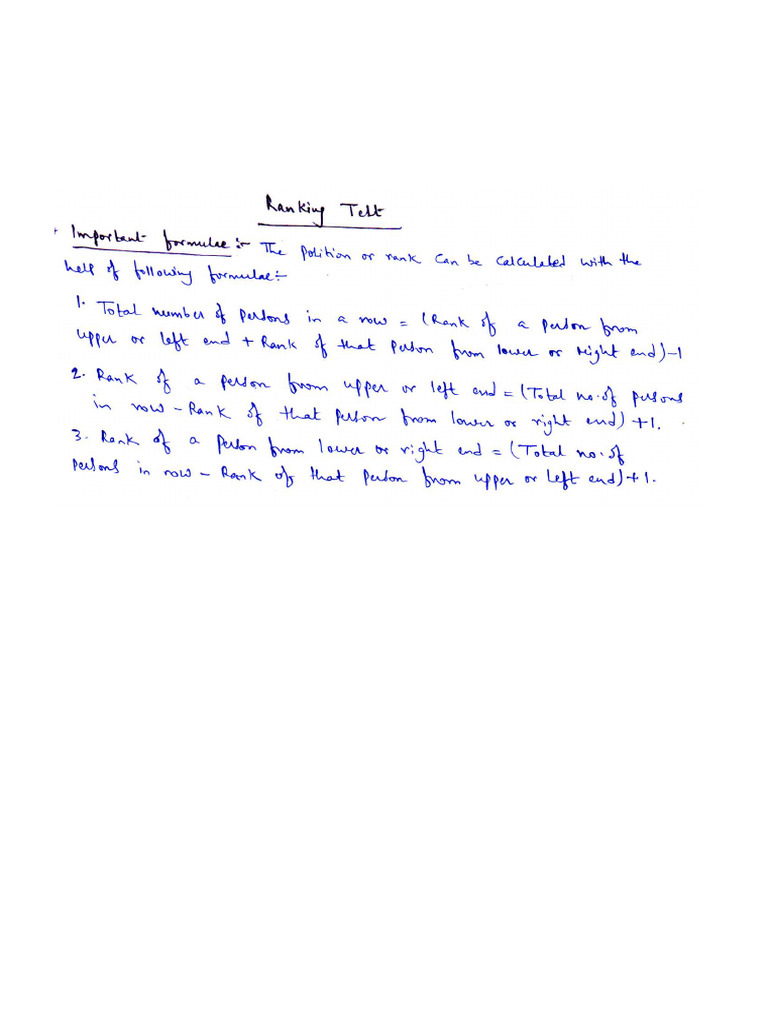 Ranking Test
Important formulae :- The position or rank can be calculated with the
help of following formulae :-
1. Total number of persons in a row = (Rank of a person from
upper or left end + Rank of that person from lower or right end) - 1
2. Rank of a person from upper or left end = (Total no. of persons
in row - Rank of that person from lower or right end) + 1.
3. Rank of a person from lower or right end = (Total no. of
persons in row - Rank of that person from upper or left end) + 1.